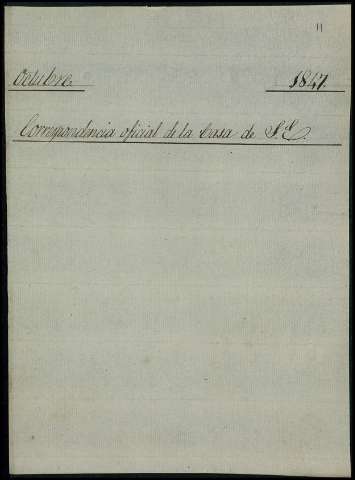 11
Octubre. 1847.
Correspondencia oficial de la Casa de S.E.